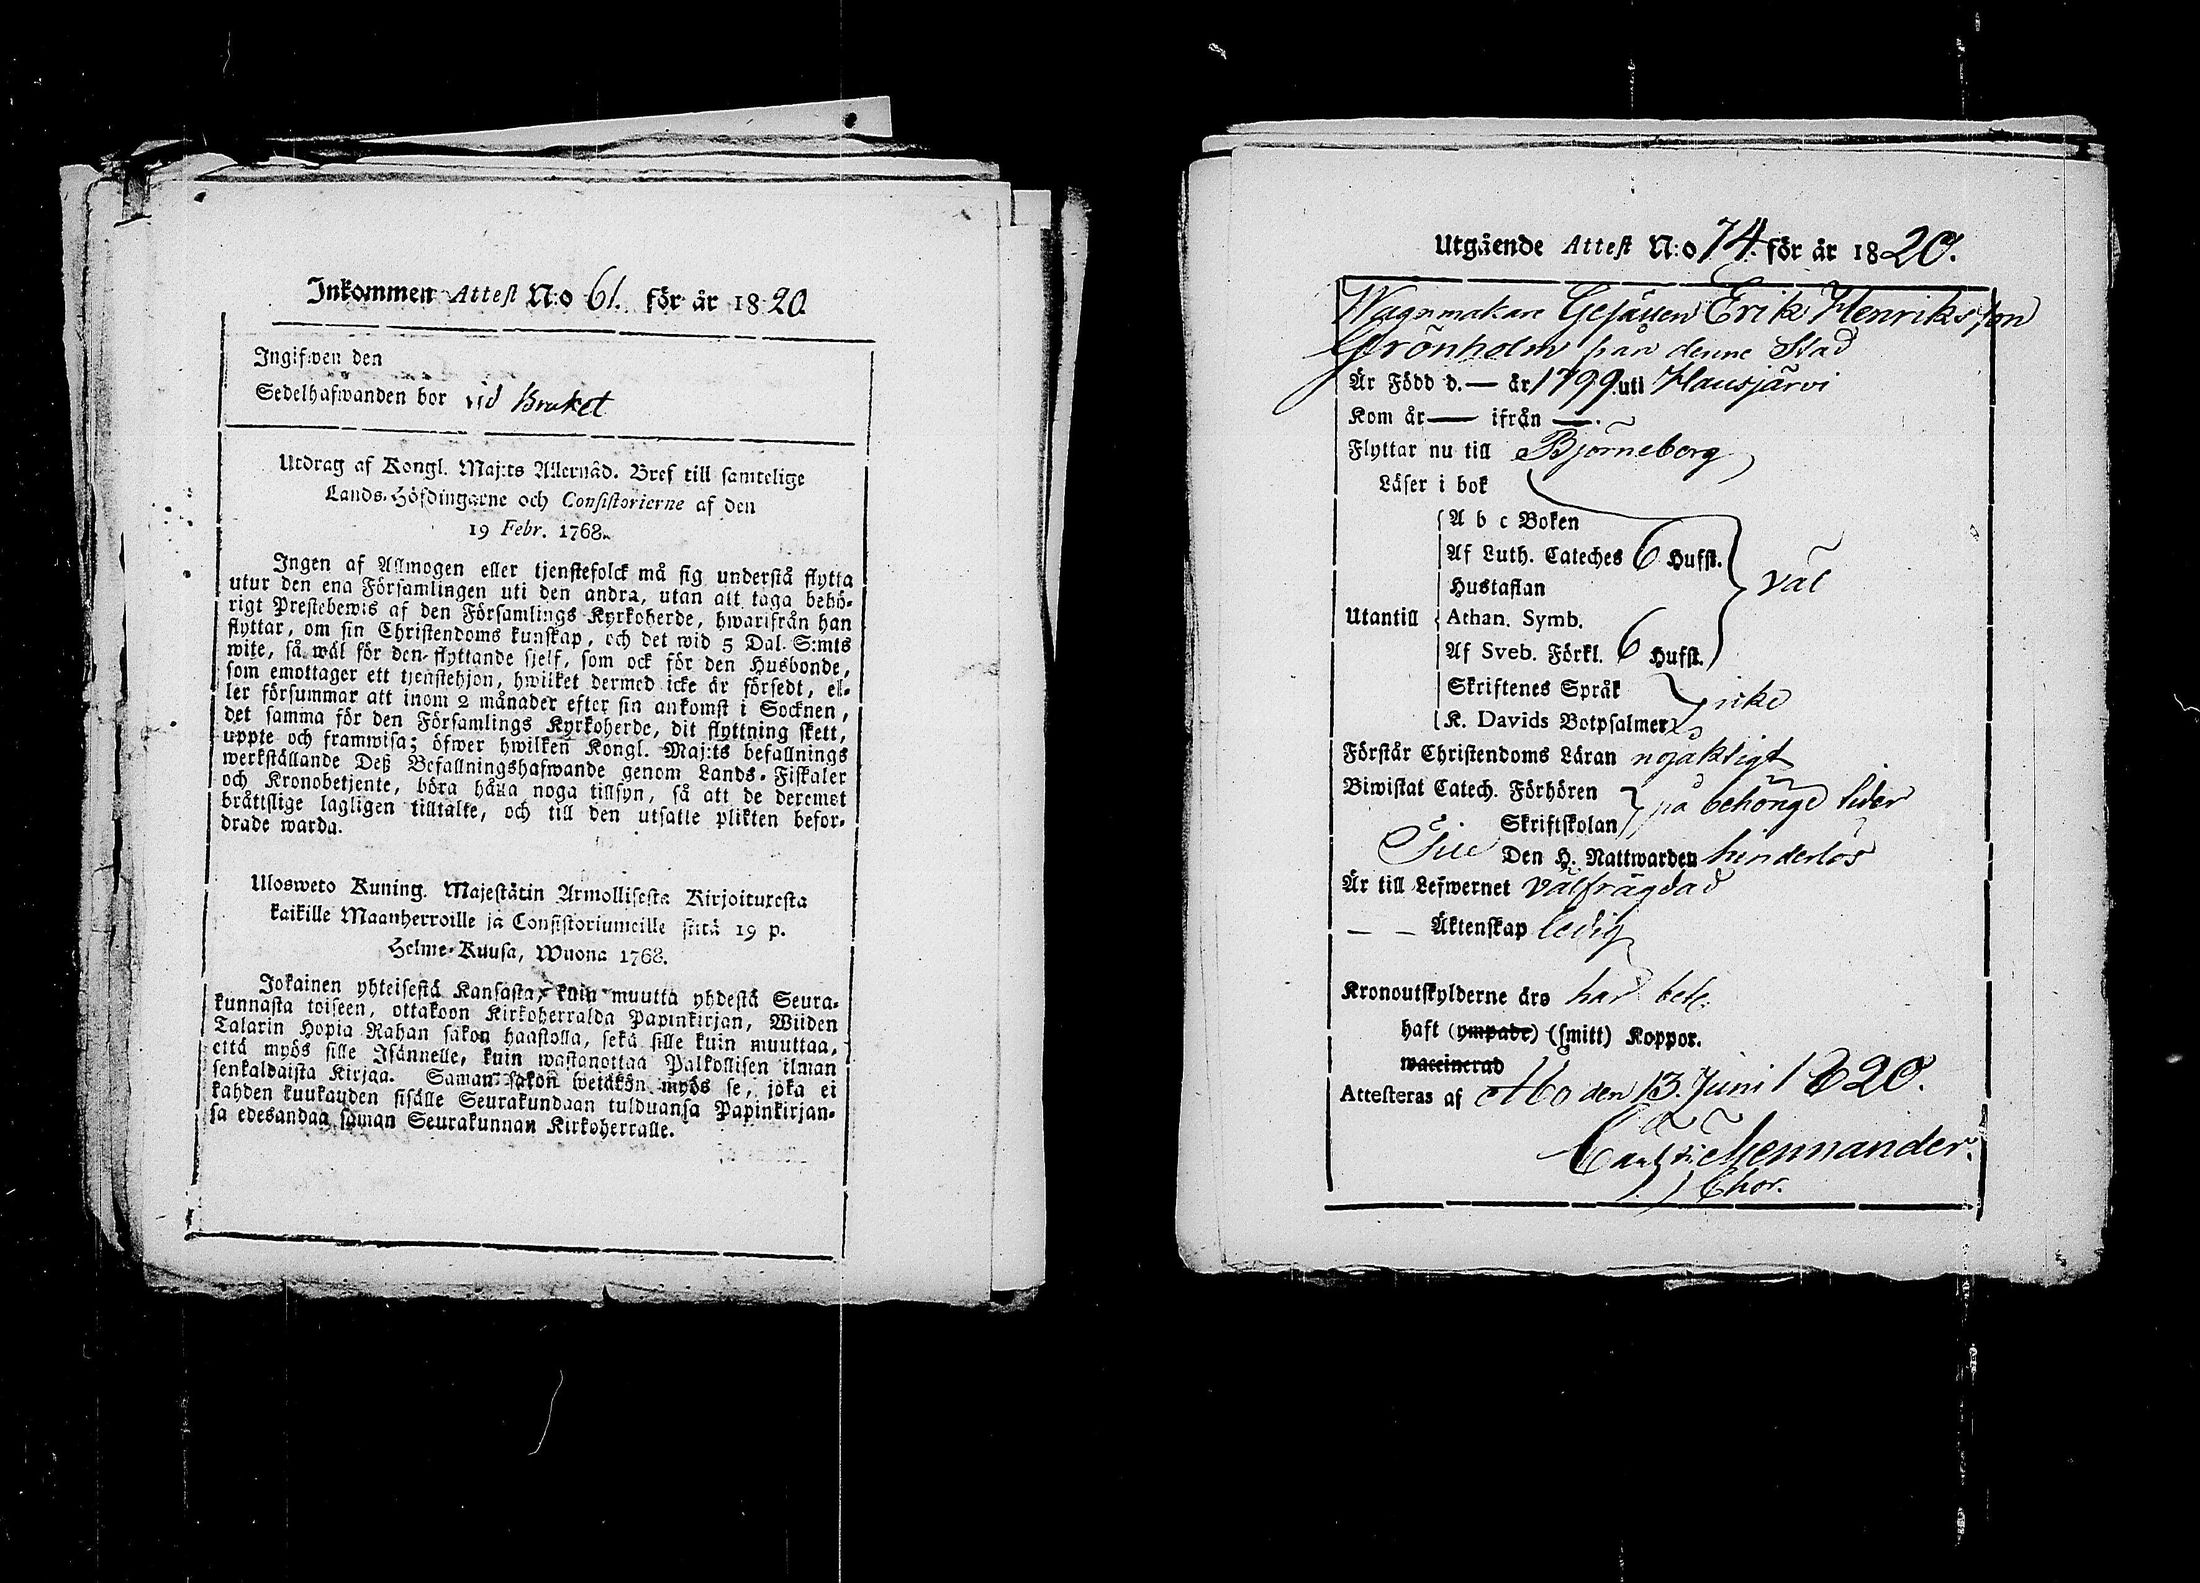 Inkommen Attest N:o 61. för år 1820.
Ingifwen den
Sedelhafwanden bor vid Bruket
Utdrag af Kongl. Maj:ts Allernåd. Bref till samtelige
Lands-Höfdingarne och Consistorierne af den
19 Febr. 1768.
Ingen af Allmogen eller tjenstefolck må sig understå flytta
utur den ena Församlingen uti den andra, utan att taga behö-
rigt Prestebewis af den Församlings Kyrkoherde, hwarifrån han
flyttar, om sin Christendoms kunskap, och det wid 5 Dal. S:mts
wite, så wäl för den flyttande sjelf, som ock för den Husbonde,
som emottager ett tjenstehjon, hwilket dermed icke är försedt, el-
ler försummar att inom 2 månader efter sin ankomst i Socknen,
det samma för den Församlings Kyrkoherde, dit flyttning skett,
uppte och framwisa; öfwer hwilken Kongl. Maj:ts befallnings
werkställande Deß Befallningshafwande genom Lands-Fiskaler
och Kronobetjente, böra hålla noga tillsyn, så att de deremot
bråttslige lagligen tilltalte, och till den utsatte plikten befor-
drade warda.
Ulosweto Kuning. Majestätin Armollisesta Kirjoituxesta
kaikille Maanherroille ja Consistoriumeille siitä 19 p.
Helme-Kuusa, Wuona 1768.
Jokainen yhteisestä Kansasta, kuin muutta yhdestä Seura-
kunnasta toiseen, ottakoon Kirkoherralda Papinkirjan, Wiiden
Talarin Hopia Rahan sakon haastolla, sekä sille kuin muuttaa,
että myös sille Isännelle, kuin wastanottaa Palkollisen ilman
senkaldaista Kirjaa. Saman sakon wetäkön myös se, joka ei
kahden kuukauden sisälle Seurakundaan tulduansa Papinkirjan-
sa edesandaa saman Seurakunnan Kirkoherralle.
Utgående Attest N:o 74. för år 1820.
Wagnmakare Gesällen Erik Henriksson
Grönholm från denne Stad
Är Född d. — år 1799. uti Hausjärvi
Kom år — ifrån —.
Flyttar nu till Björneborg
Läser i bok
A b c Boken
Af Luth. Cateches 6 Hufst.
väl
Hustaflan
Utantill Athan. Symb.
Af Sveb. Förkl. 6 Hufst.
Skriftenes Språk
icke
K. Davids Botpsalmer
Förstår Christendoms Läran nöjaktigt
Biwistat Catech. Förhören
på behörige tider
Skriftskolan
Den H. Nattwarden hinderlös
Är till Lefwernet välfrägdad
— — Äktenskap ledig
Kronoutskylderne äro har bet.
haft (ympade) (smitt) Koppor.
waccinerad
Attesteras af Åbo den 13. Juni 1820.
Mennander.